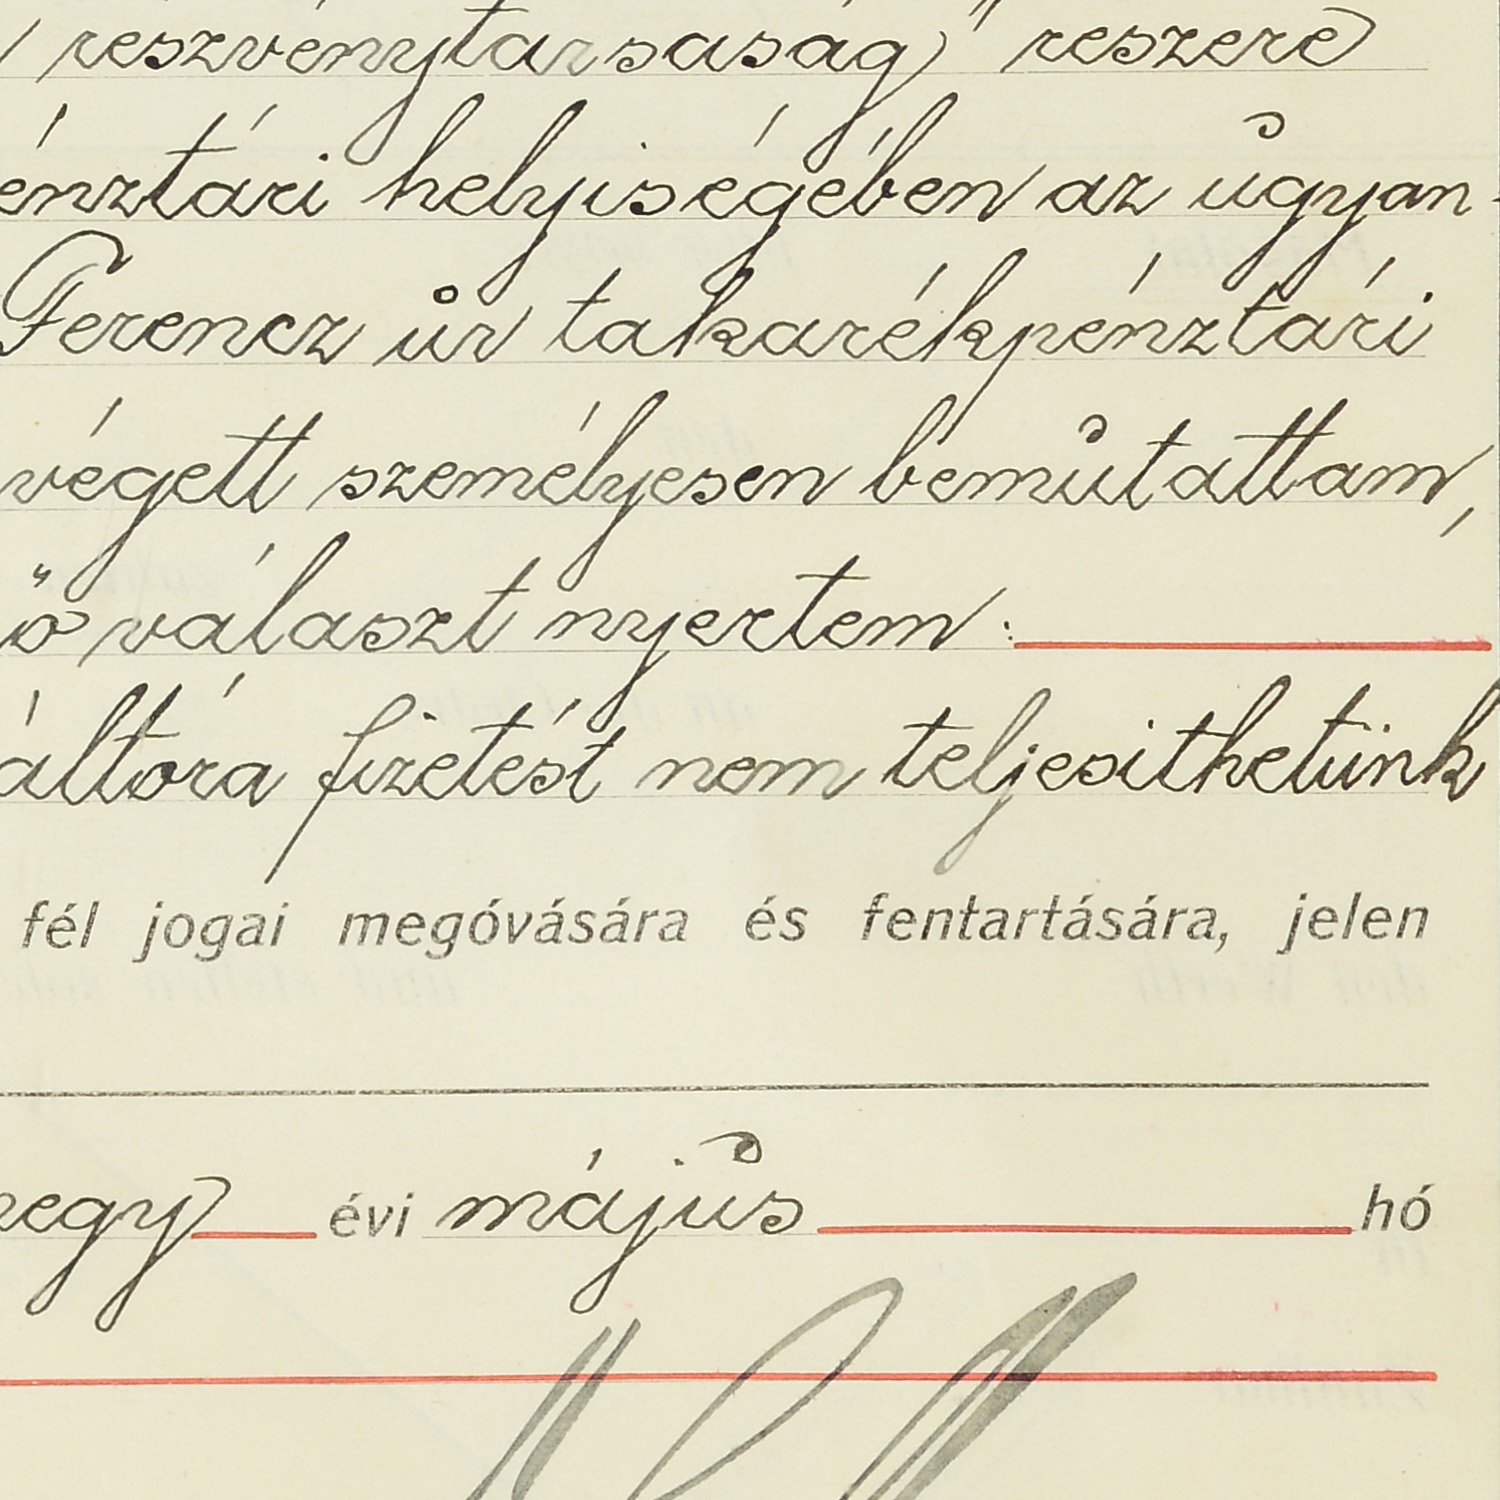 részvénytársaság)" részére
énztári helyiségében az ugyan-
Ferencz úr takarékpénztári
végett személyesen bemutattam,
ő választ nyertem:
áltóra fizetést nem teljesithetünk
fél jogai megóvására és fentartására, jelen
negy évi május hó